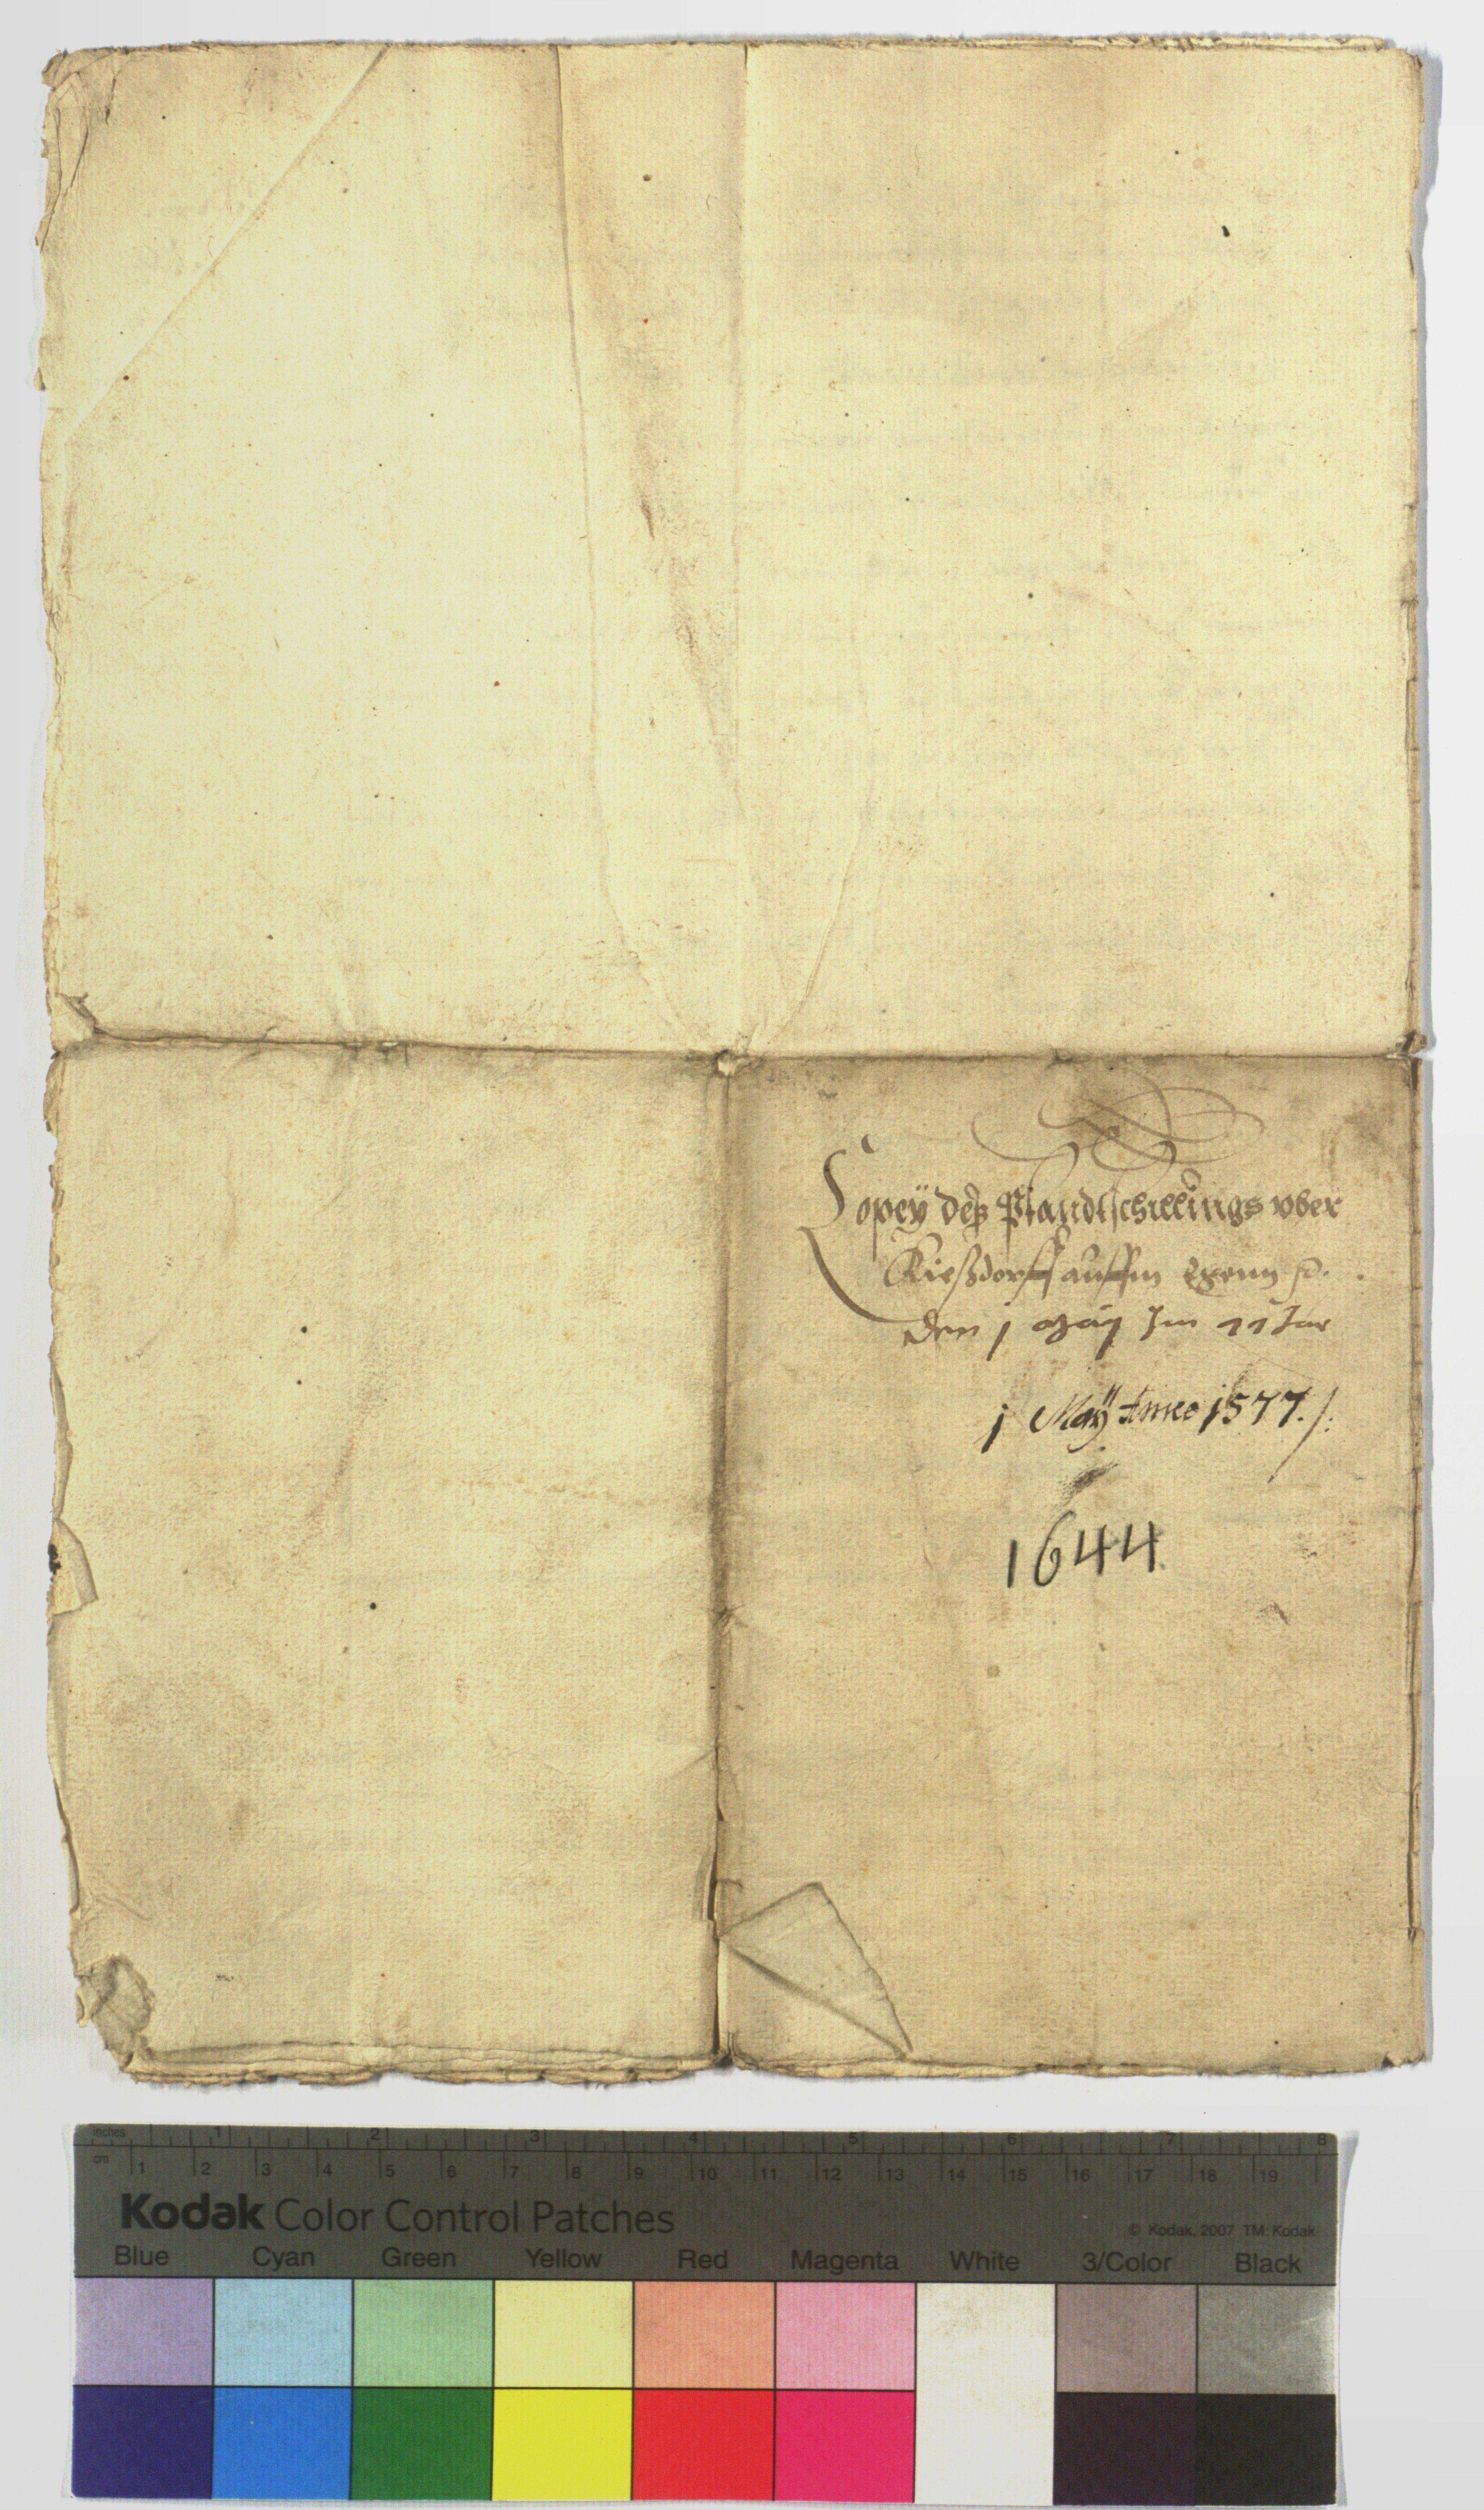 Copeÿ deß Pfandtschillings vber
Rießdorff auffm
den j Maÿ Im 77 Jar
j Maÿ Anno 1577 ./.
1644
inches 1 2 3 4 5 6 7 8
cm 1 2 3 4 5 6 7 8 9 10 11 12 13 14 15 16 17 18 19
Kodak Color Control Patches
© Kodak, 2007 TM: Kodak
Blue Cyan Green Yellow Red Magenta White 3/Color Black